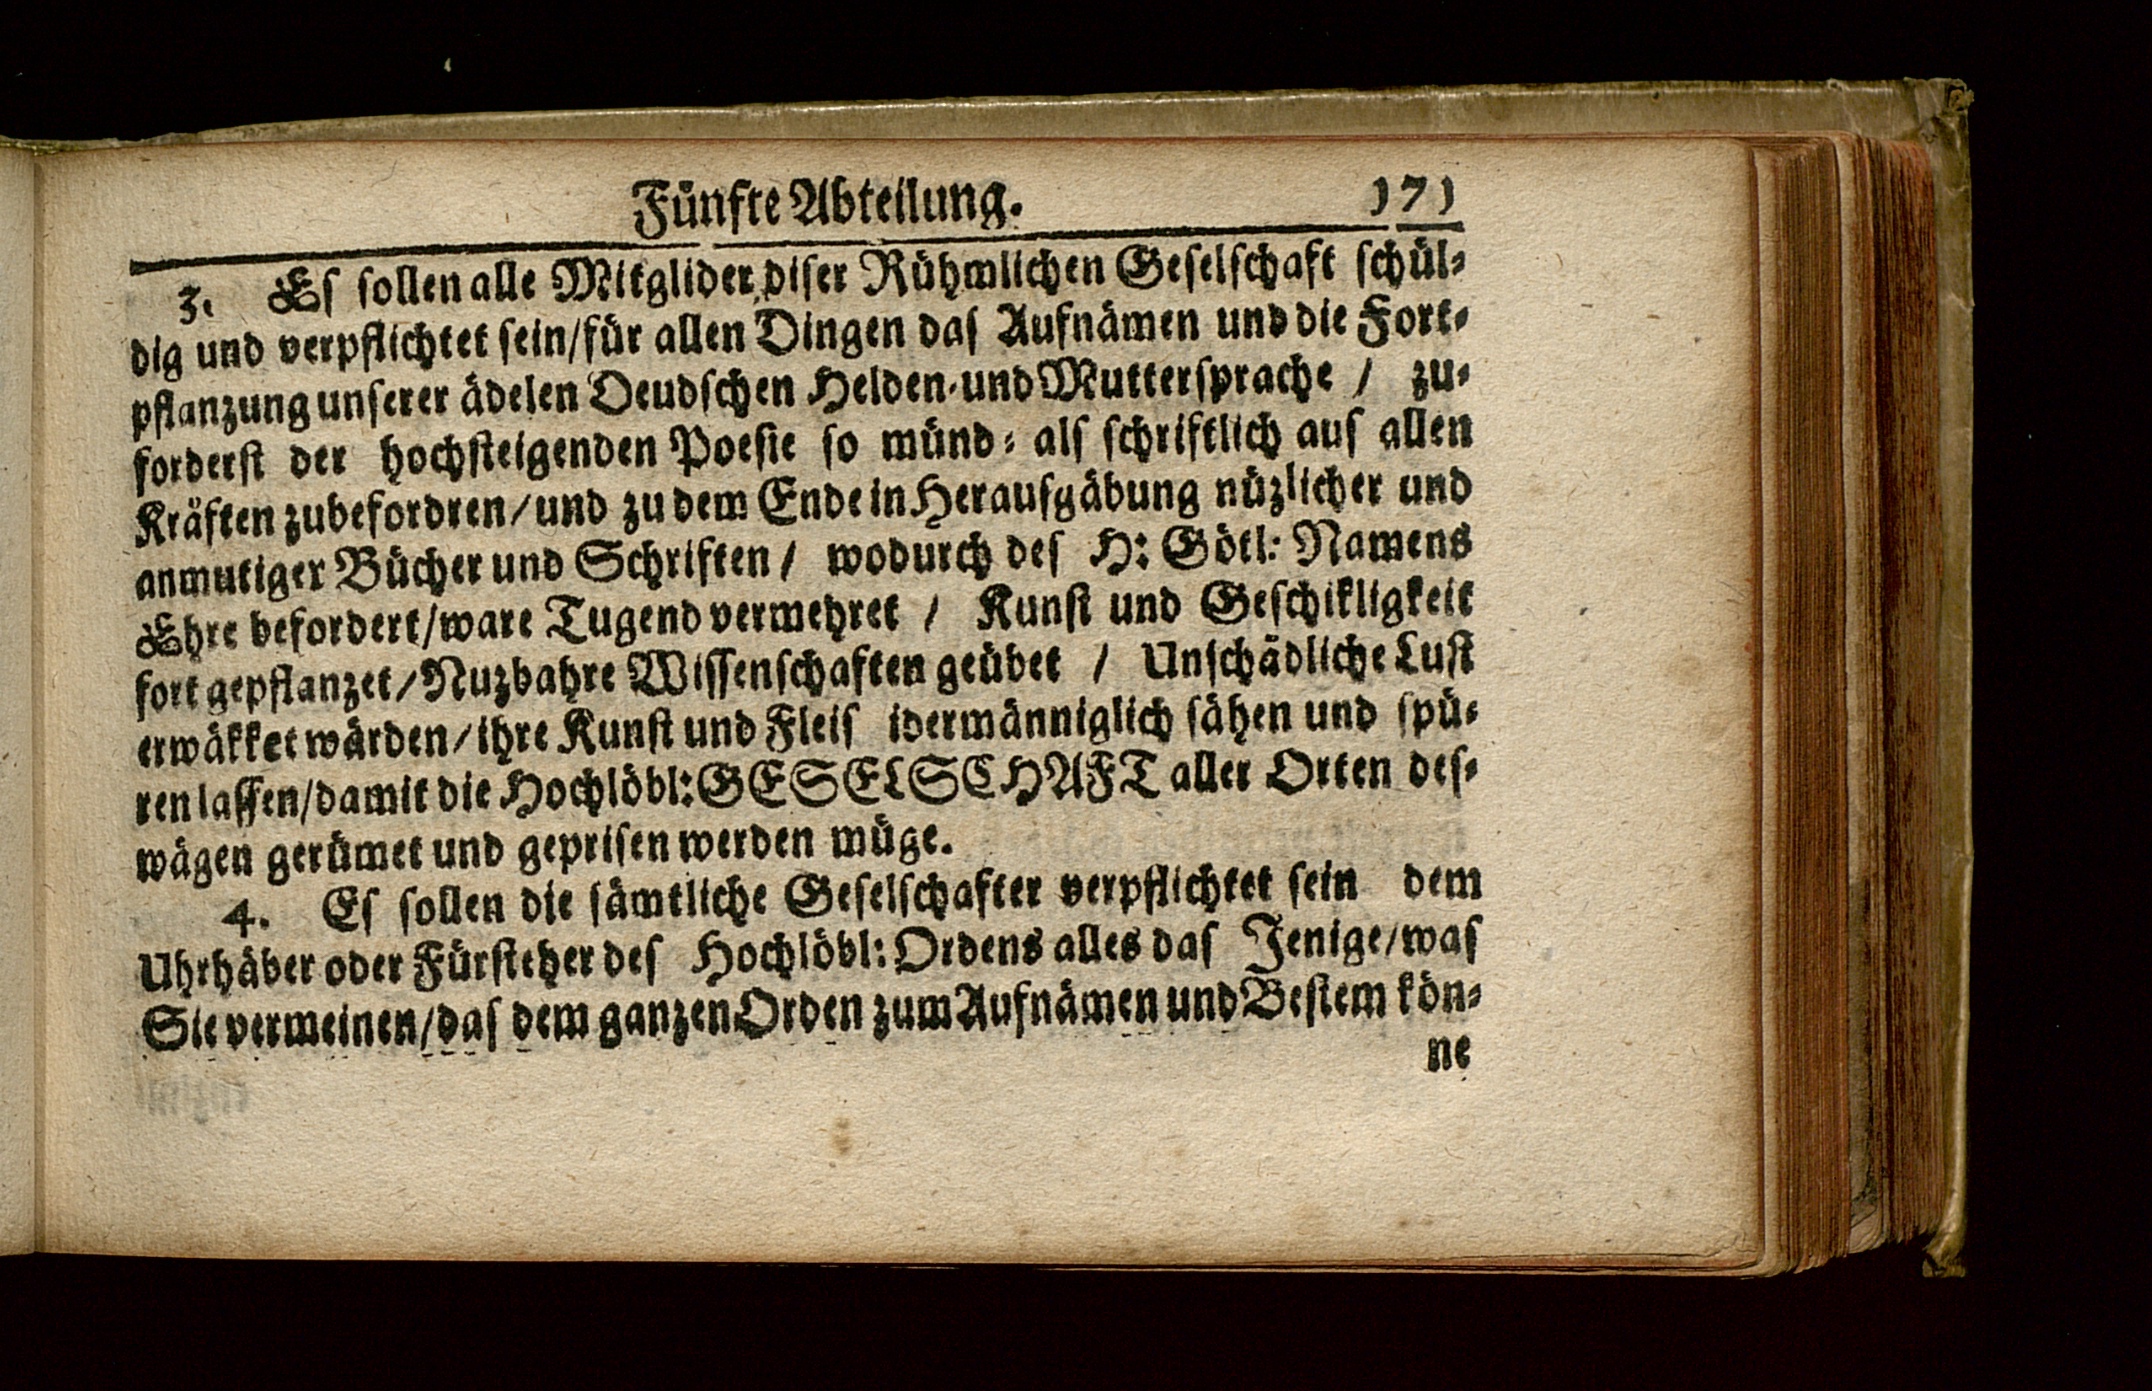 Fünfte Abteilung. 171
3. Es ſollen alle Mitglider diſer Rühmlichen Geſelſchaft ſchül⸗
dig und verpflichtet ſein/für allen Dingen daſ Aufnämen und die Fort⸗
pflanzung unſerer ädelen Deudſchen Helden⸗und Mutterſprache / zu⸗
forderſt der hochſteigenden Poeſie ſo münd⸗ alſ ſchriftlich auſ allen
Kräften zubefordren/und zu dem Ende in Herauſgäbung nüzlicher und
anmutiger Bücher und Schriften / wodurch deſ H: Götl: Namens
Ehre befordert/ware Tugend vermehret / Kunſt und Geſchikligkeit
fort gepflanzet/Nuzbahre Wiſſenſchaften geübet / Unſchädliche Luſt
erwäkket wärden/ihre Kunſt und Fleiſ idermänniglich ſähen und ſpü⸗
ren laſſen/damit die Hochlöbl: GESELSCHAFT aller Orten deſ⸗
wägen gerümet und gepriſen werden müge.
4. Eſ ſollen die ſämtliche Geſelſchafter verpflichtet ſein dem
Uhrhäber oder Fürſteher deſ Hochlöbl: Ordens alles daſ Jenige/waſ
Sie vermeinen/daſ dem ganzen Orden zum Aufnämen und Beſtem kön⸗
ne